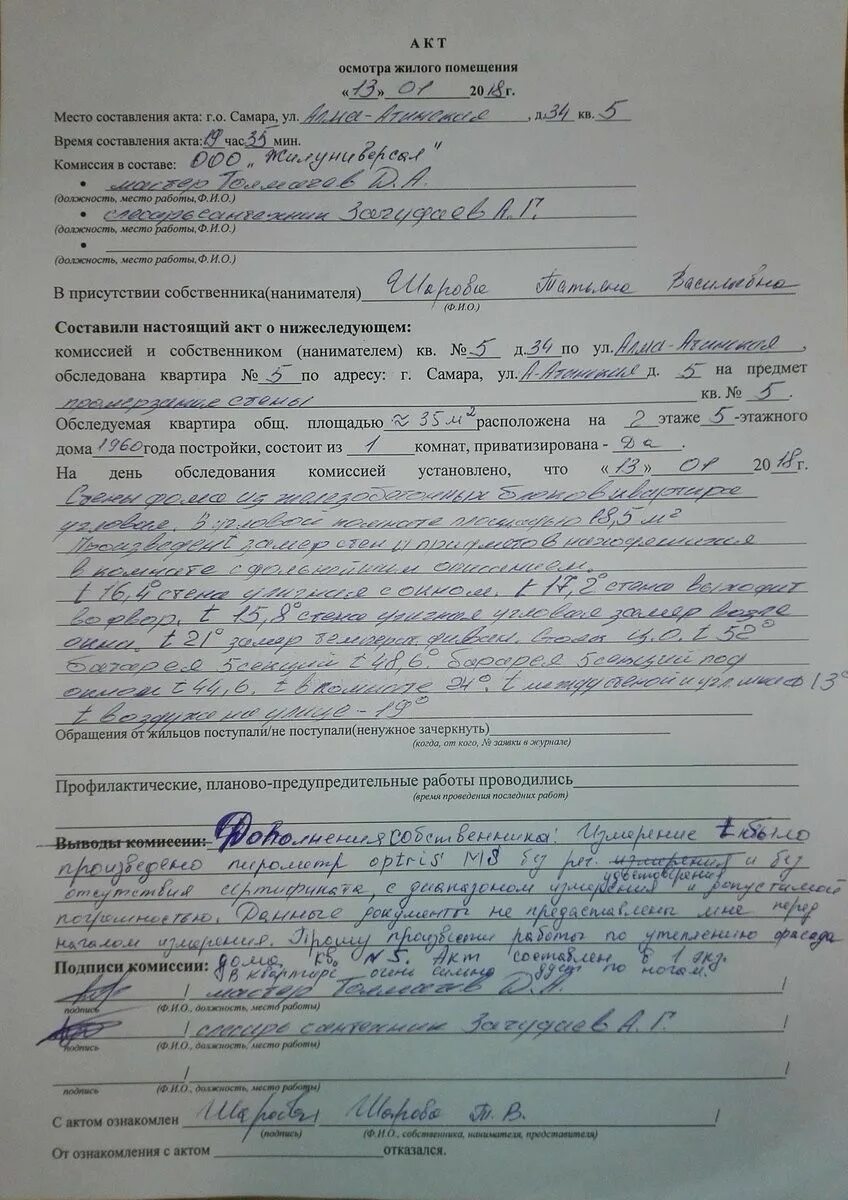 АКТ
осмотра жилого помещения
«13» 01 2018г.
Место составления акта: г.о. Самара, ул. Алма-Атинская, д.34 кв. 5
Время составления акта: 19 час 35 мин.
Комиссия в составе: ООО „Жилуниверсал"
• мастер Толмачев Д.А.
(должность, место работы,Ф.И.О.)
• слесарь сантехник А.Г.
(должность, место работы,Ф.И.О.)
•
(должность, место работы,Ф.И.О.)
В присутствии собственника(нанимателя) Шарова Татьяна Васильевна
(Ф.И.О.)
Составили настоящий акт о нижеследующем:
комиссией и собственником (нанимателем) кв. № 5 д.34 по ул. Алма-Атинская,
обследована квартира № 5 по адресу: г. Самара, ул. А-Атинская д. 5 на предмет
промерзания стены кв. № 5.
Обследуемая квартира общ. площадью ≈ 35 м² расположена на 2 этаже 5-этажного
дома 1960 года постройки, состоит из 1 комнат, приватизирована - Да.
На день обследования комиссией установлено, что «13» 01 2018г.
Стены дома из железобетонных блоков квартира
угловая. В угловой комнате площадью 18,5 м²
Произведен t замер стен и предметов находящихся
в комнате с дальнейшим описанием.
t 16,4° стена уличная с окном. t 17,2° стена выходит
во двор. t 15,8° стена уличная угловая замер возле
окна. t 21° замер диван. ц.о. t 52°
батарея 5 секций t 48,6° батарея 5 секций под
окном t 44,6. t в комнате 21°. t между стеной и 13°
t воздуха на улице - 19°
Обращения от жильцов поступали/не поступали(ненужное зачеркнуть)
(когда, от кого, № заявки в журнале)
Профилактические, планово-предупредительные работы проводились
(время проведения последних работ)
Выводы комиссии: Дополнения собственника: Измерение t было
произведено пирометр optris MS без рег. измерения и без
удостоверения
отсутствия сертификата, с диапазоном измерения и допустимой
погрешностью. Данные документы не предоставлены мне перед
началом измерения. Прошу произвести работы по утеплению фасада
дома кв. №5. Акт составлен в 1 экз.
Подписи комиссии: В квартире очень сильно дует по ногам.
/ мастер Толмачев Д.А. /
подпись (Ф.И.О., должность, место работы)
/ слесарь сантехник А.Г. /
подпись (Ф.И.О., должность, место работы)
/ /
подпись (Ф.И.О., должность, место работы)
С актом ознакомлен Шарова / Шарова Т.В. /
(подпись) (Ф.И.О., собственника, нанимателя, представителя)
От ознакомления с актом отказался.